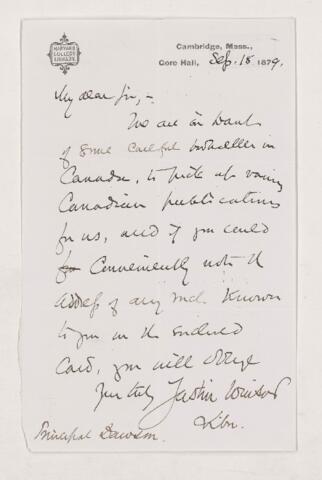 HARVARD
COLLEGE
LIBRARY.
Cambridge, Mass.,
Gore Hall, Sep. 15 1879.
My dear Sir, -
We are in want
of some careful bookseller in
Canada, to pick up various
Canadian publications
for us, and if you could
Conveniently note the
address of any such Known
to you on the enclosed
Card, you will oblige
Yours truly Justin Winsor
Libn.
Principal Dawson.